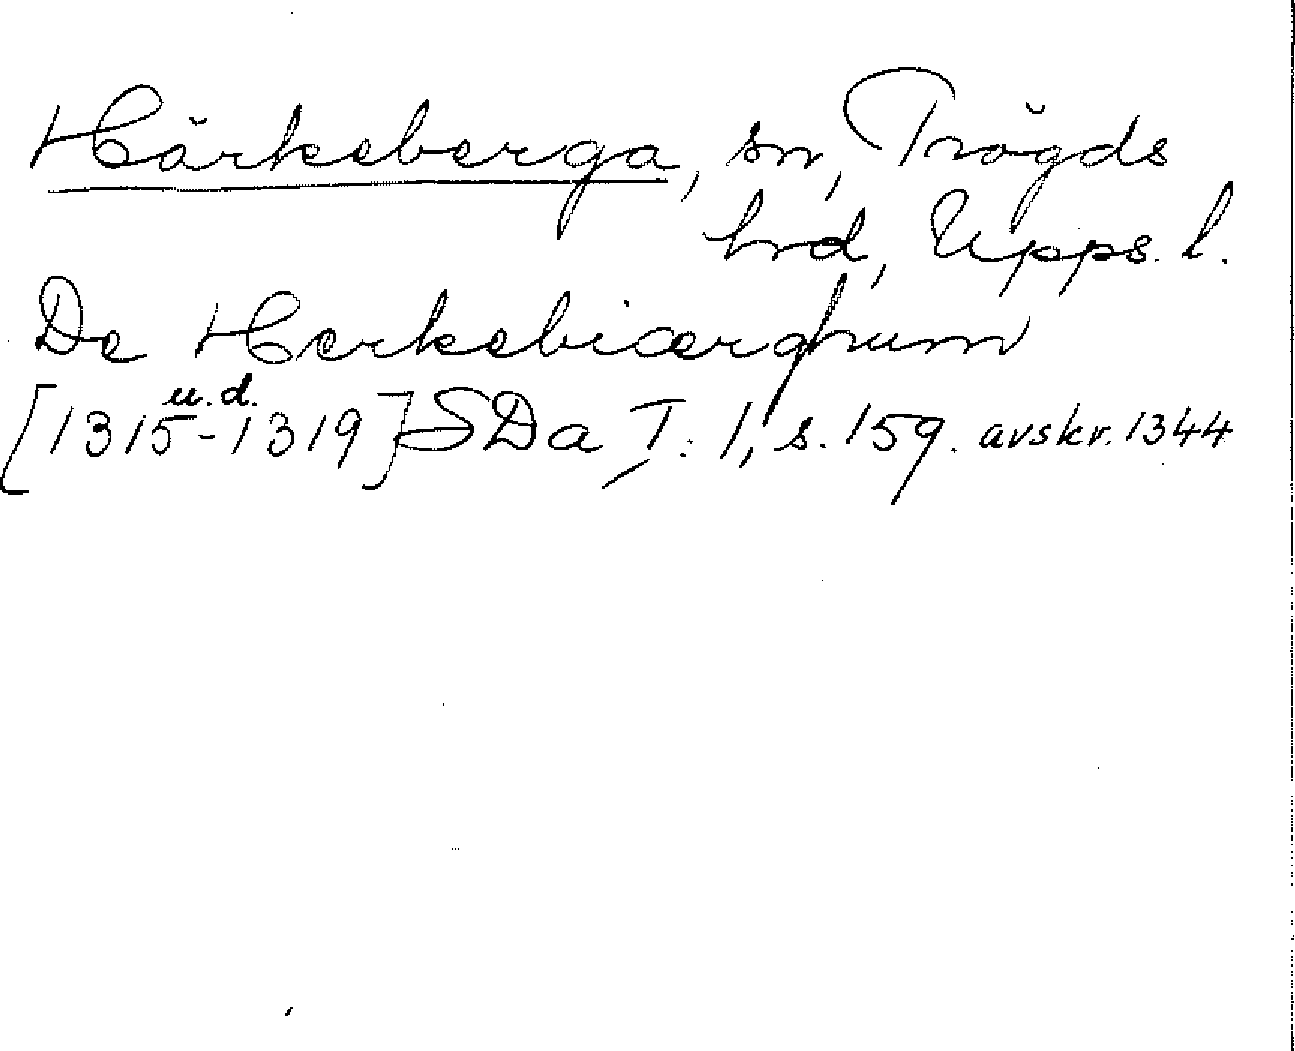 Härkeberga, sn, Trögds
hrd, Upps. l.
De Herkebiærghum
u.d.
[1315-1319] SDa T: 1, s. 159. avskr. 1344